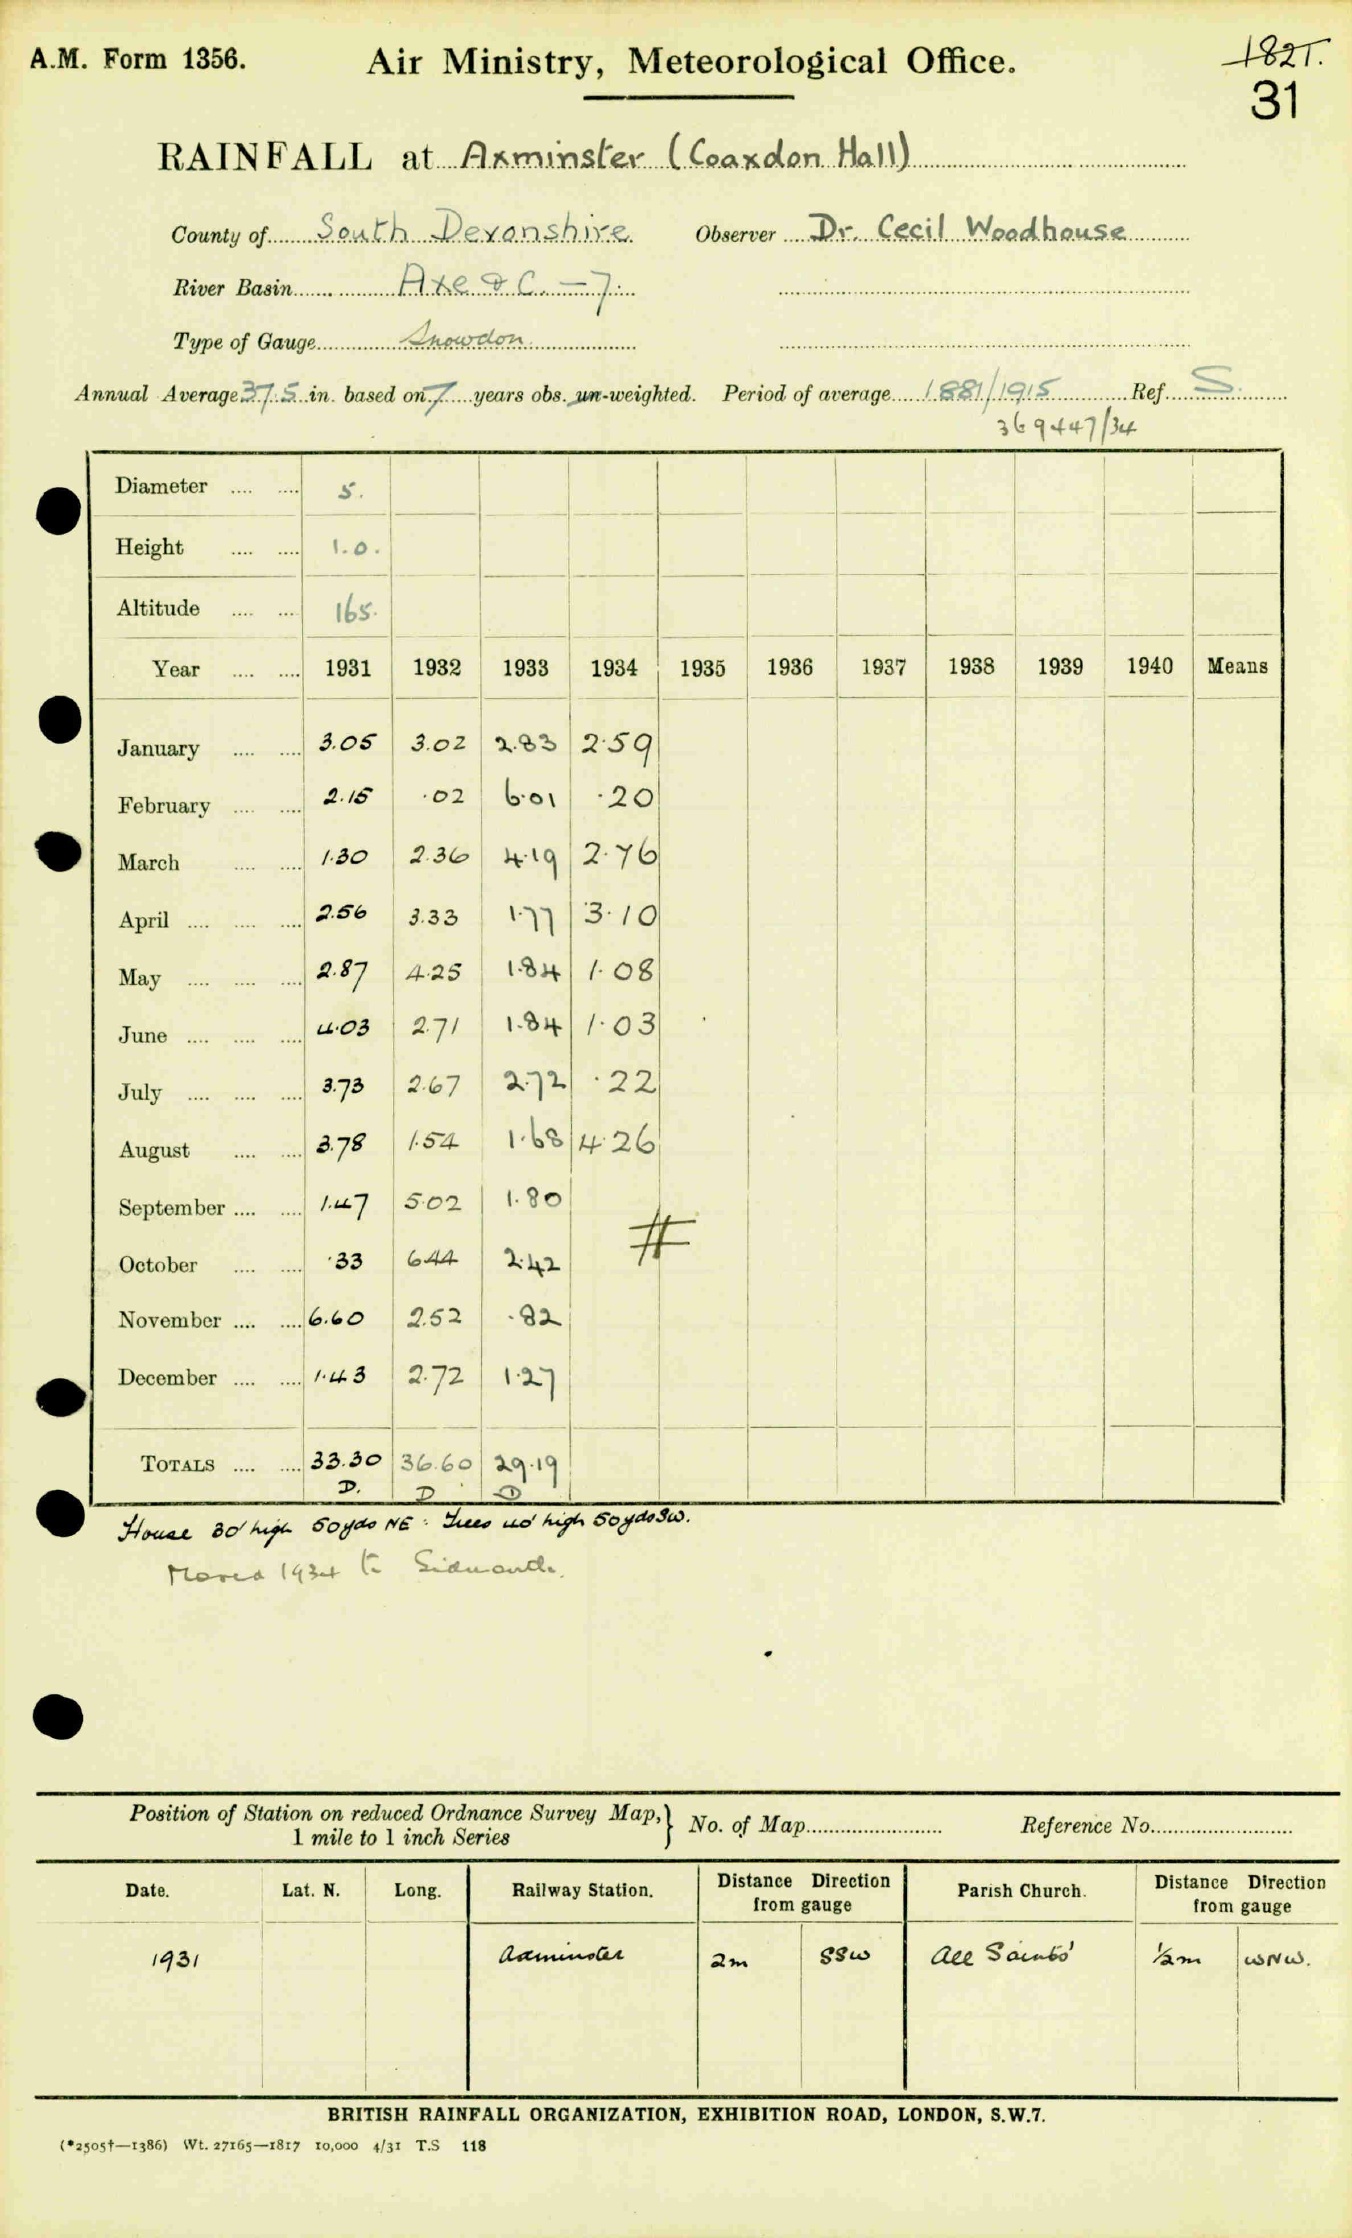 A.M. Form 1356.
Air Ministry, Meteorological Office.
1821.
31
RAINFALL at Axminster (Coaxdon Hall)
County of South Devonshire Observer Dr. Cecil Woodhouse
River Basin Axe & C. — 7.
Type of Gauge Snowdon
Annual Average 37.5 in. based on 7 years obs. un-weighted. Period of average 1881/1915 Ref. S.
369447/34
Diameter 5.
Height 1.0.
Altitude 165.
Year 1931 1932 1933 1934 1935 1936 1937 1938 1939 1940 Means
January 3.05 3.02 2.83 2.59
February 2.15 .02 6.01 .20
March 1.30 2.36 4.19 2.76
April 2.56 3.33 1.77 3.10
May 2.87 4.25 1.84 1.08
June 4.03 2.71 1.84 1.03
July 3.73 2.67 2.72 .22
August 3.78 1.54 1.68 4.26
September 1.47 5.02 1.80
#
October .33 6.44 2.42
November 6.60 2.52 .82
December 1.43 2.72 1.27
TOTALS 33.30 36.60 29.19
D. D D
House 30' high 50yds NE. Trees 40' high 50yds SW.
Moved 1934 to Sidmouth.
Position of Station on reduced Ordnance Survey Map, } No. of Map Reference No.
1 mile to 1 inch Series
Date. Lat. N. Long. Railway Station. Distance Direction from gauge Parish Church. Distance Direction from gauge
1931 Axminster 2m SSW All Saints' ½m WNW.
BRITISH RAINFALL ORGANIZATION, EXHIBITION ROAD, LONDON, S.W.7.
(*2505†—1386) Wt. 27165—1817 10,000 4/31 T.S 118